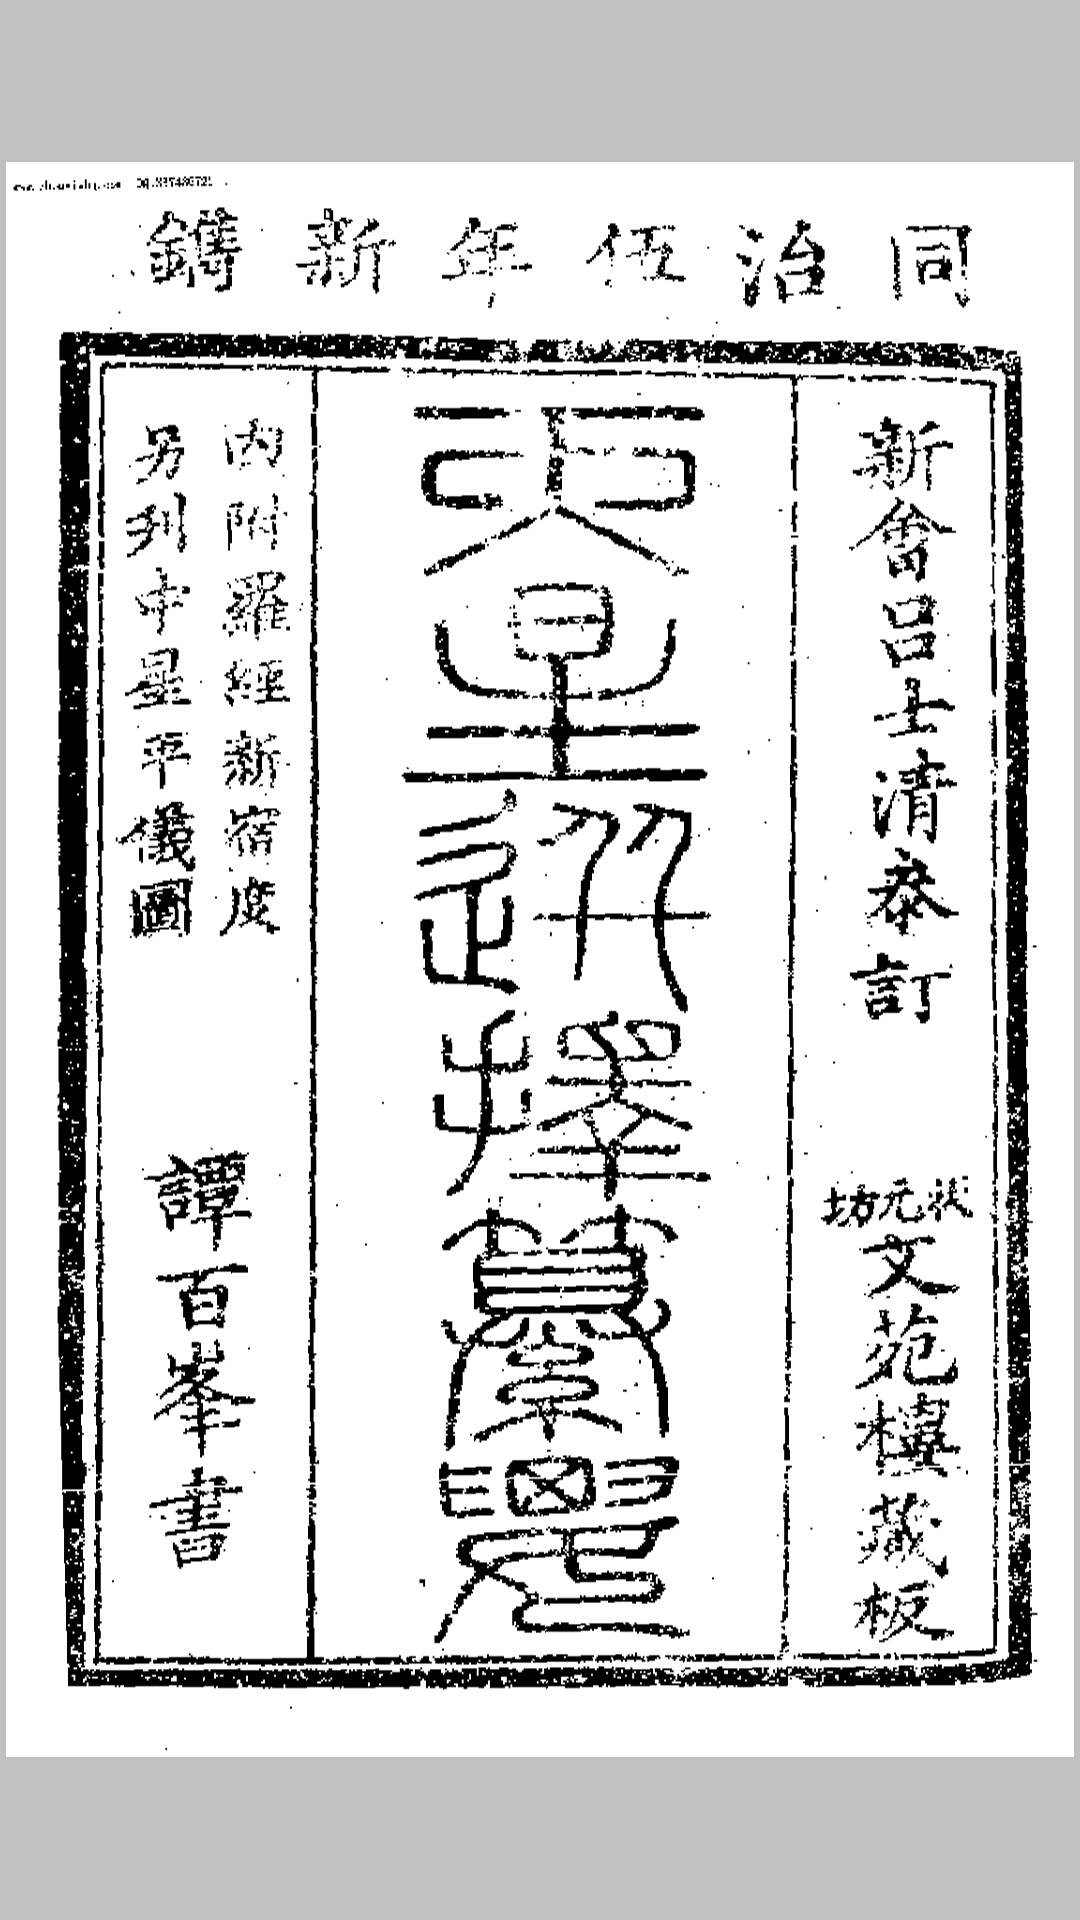 同治伍年新鐫
新會呂士清泰訂
狀元坊
文苑樓藏板
天星
選擇
纂要
內附羅經新宿度
另列中星平儀圖
譚百峯書